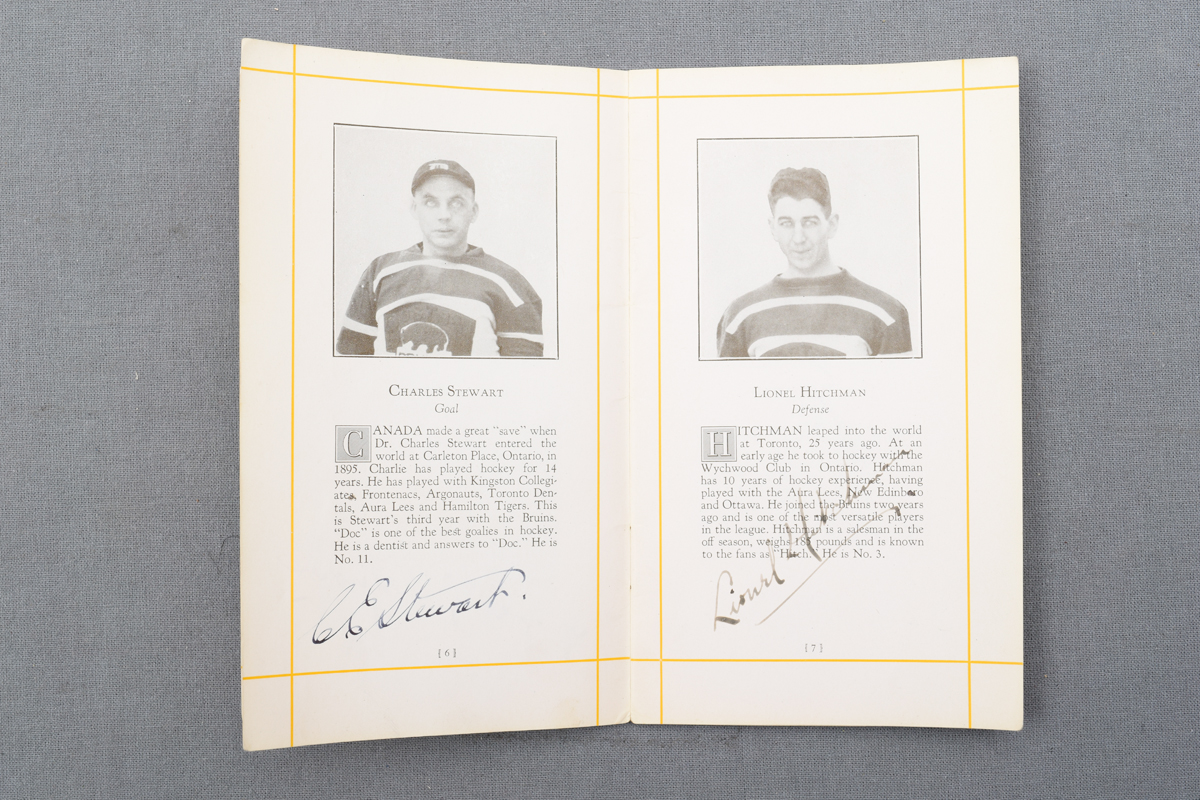 CHARLES STEWART
Goal
CANADA made a great "save" when
Dr. Charles Stewart entered the
world at Carleton Place, Ontario, in
1895. Charlie has played hockey for 14
years. He has played with Kingston Collegi-
ates, Frontenacs, Argonauts, Toronto Den-
tals, Aura Lees and Hamilton Tigers. This
is Stewart's third year with the Bruins.
"Doc" is one of the best goalies in hockey.
He is a dentist and answers to "Doc." He is
No. 11.
C E Stewart.
[6]
LIONEL HITCHMAN
Defense
HITCHMAN leaped into the world
at Toronto, 25 years ago. At an
early age he took to hockey with the
Wychwood Club in Ontario. Hitchman
has 10 years of hockey experience, having
played with the Aura Lees, New Edinboro
and Ottawa. He joined the Bruins two years
ago and is one of the most versatile players
in the league. Hitchman is a salesman in the
off season, weighs 185 pounds and is known
to the fans as "Hitch." He is No. 3.
Lionel Hitchman
[7]